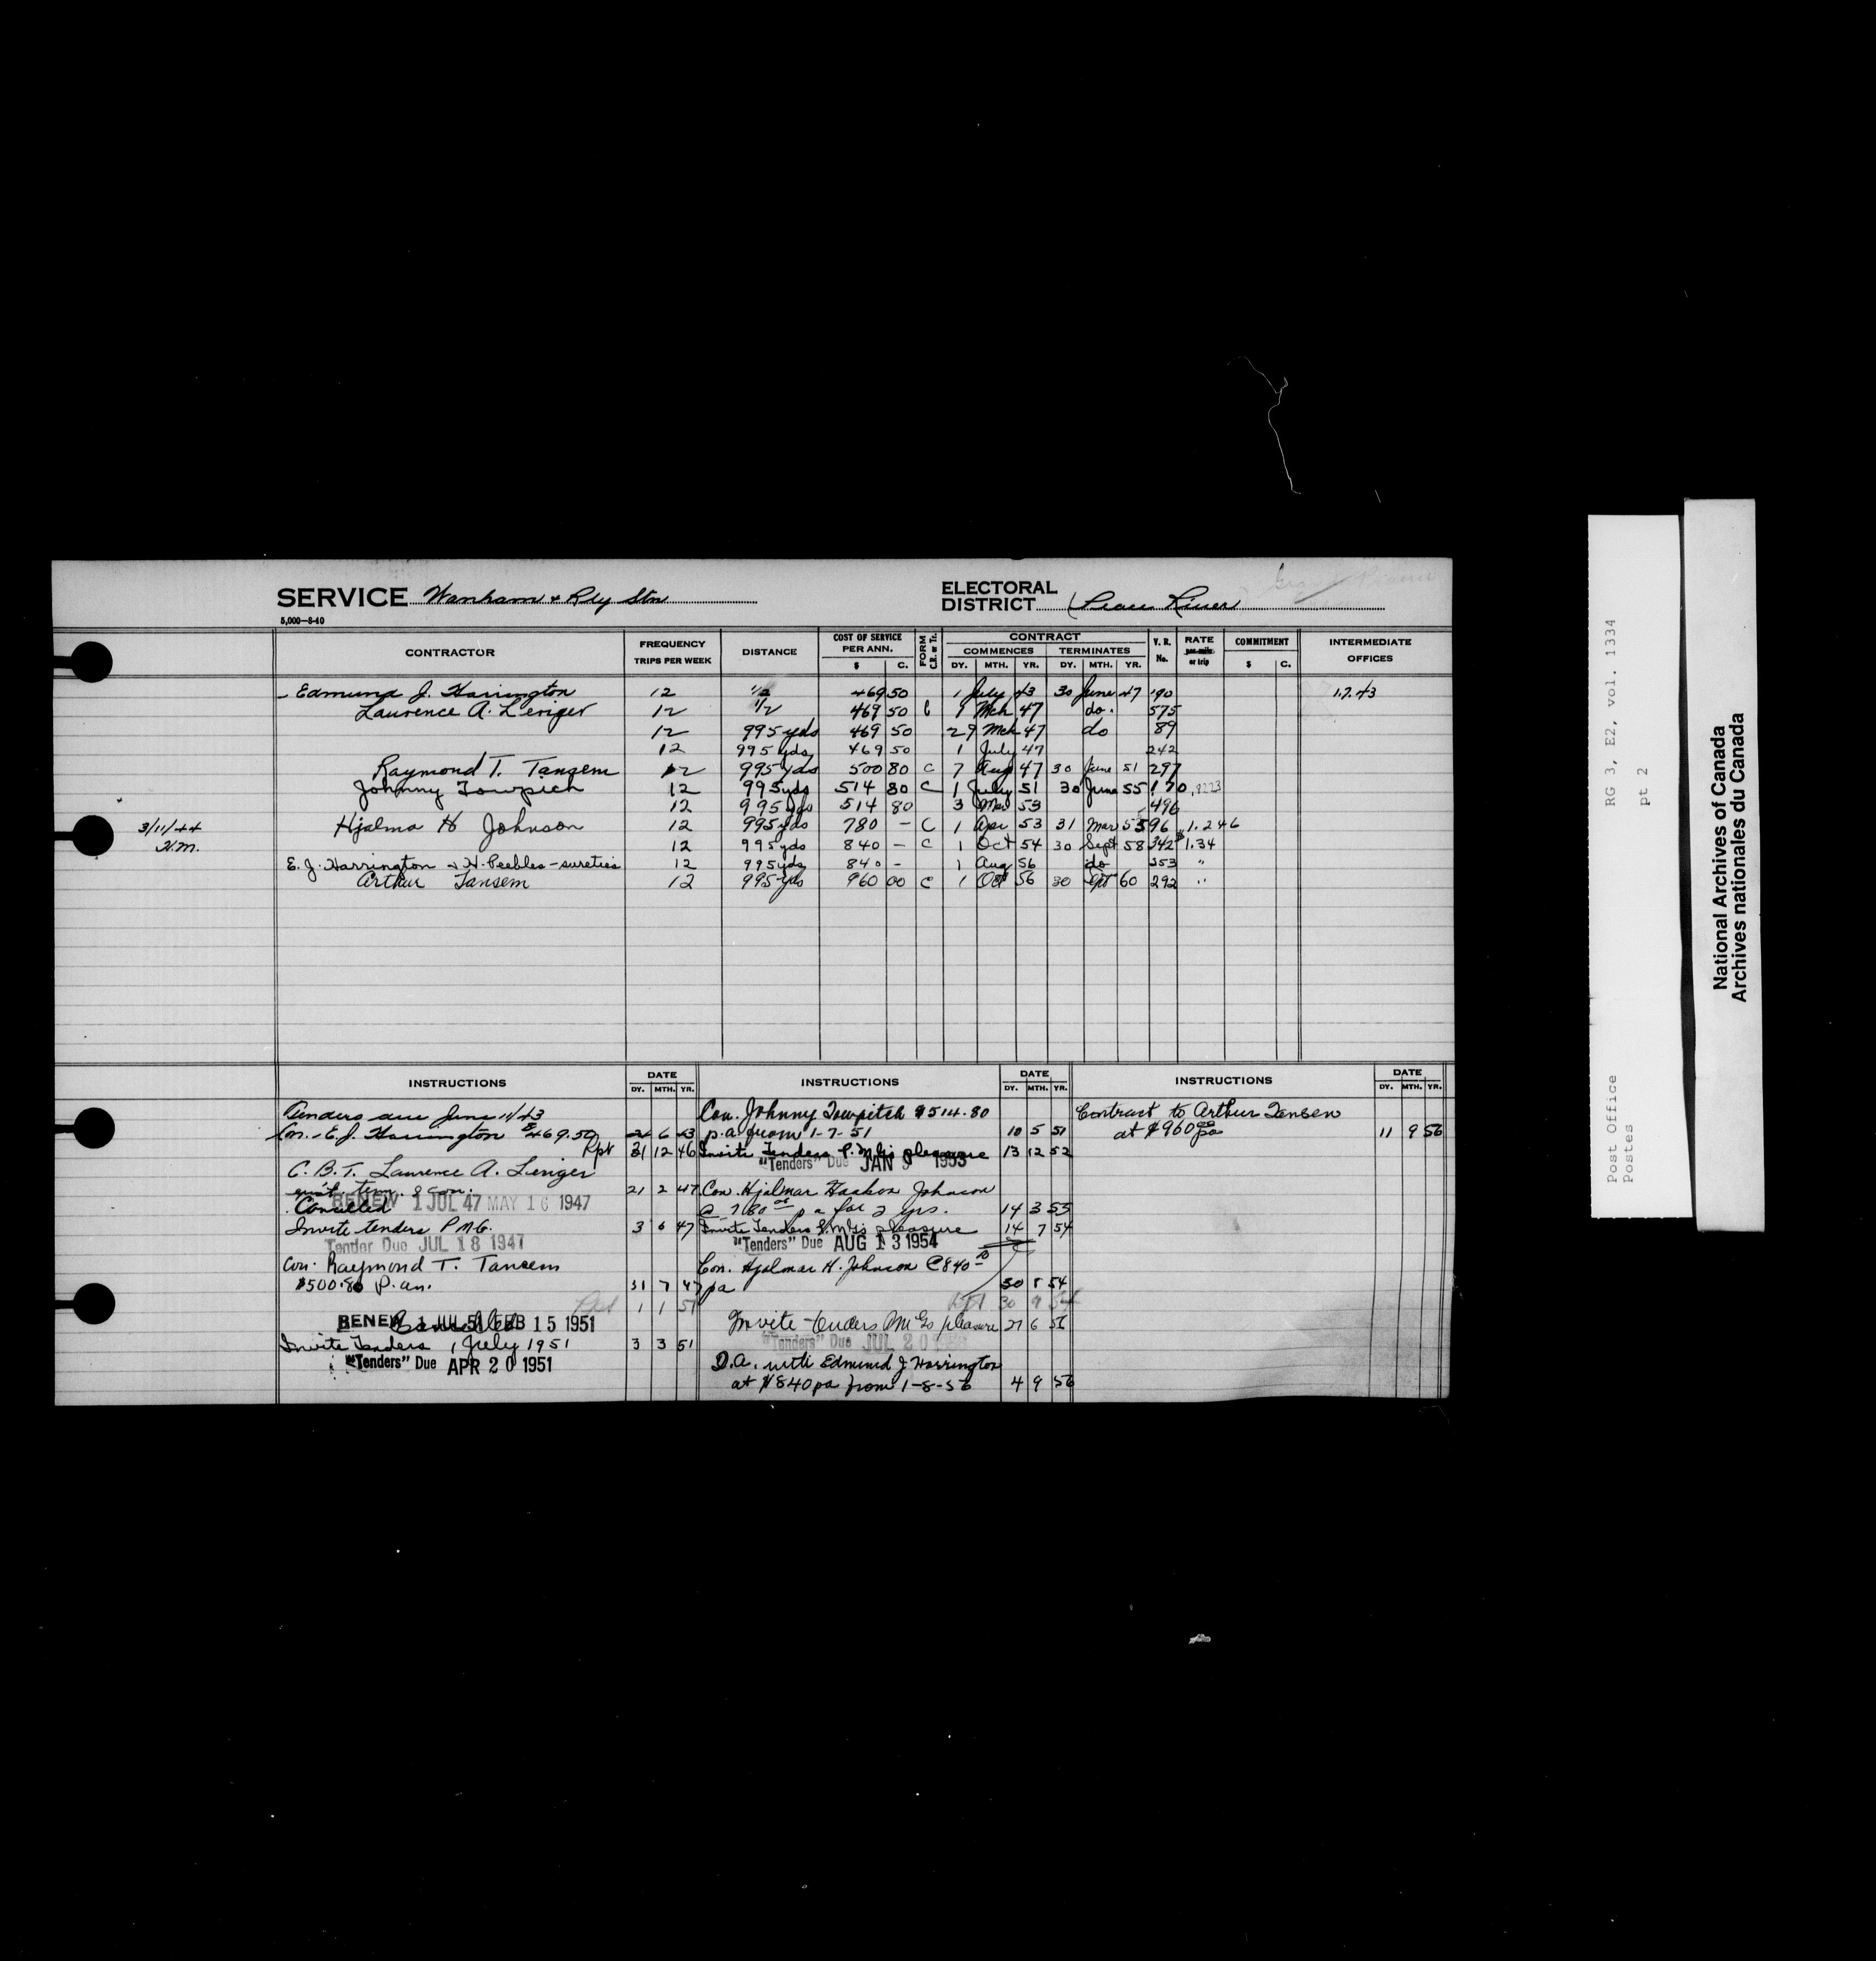 SERVICE Wanham & Rly Stn
ELECTORAL DISTRICT Peace River
5,000—8-40
CONTRACTOR FREQUENCY TRIPS PER WEEK DISTANCE COST OF SERVICE PER ANN. $ C. FORM C.R. or Tr. CONTRACT COMMENCES DY. MTH. YR. TERMINATES DY. MTH. YR. V. R. No. RATE per mile or trip COMMITMENT $ C. INTERMEDIATE OFFICES
Edmund J. Harrington 12 1/2 469 50 1 July 43 30 June 47 190 1.7.43
Laurence A. Leriger 12 1/2 469 50 1 Mch 47 do. 575
12 995 yds 469 50 29 Mch 47 do 89
12 995 yds 469 50 1 July 47 242
Raymond T. Tansem 12 995 yds 500 80 C 7 Aug 47 30 June 51 297
Johnny Towpich 12 995 yds 514 80 C 1 July 51 30 June 55 170 .8223
12 995 yds 514 80 3 Mar 53 496
3/11/44
H.M.
Hjalma H Johnson 12 995 yds 780 – C 1 Apr 53 31 Mar 55 96 1.246
12 995 yds 840 – C 1 Oct 54 30 Sept 58 342 $1.34
E. J. Harrington & H. Peebles – sureties 12 995 yds 840 – 1 Aug 56 do 253 "
Arthur Tansem 12 995 yds 960 00 C 1 Oct 56 30 Sept 60 292 "
INSTRUCTIONS DATE DY. MTH. YR. INSTRUCTIONS DATE DY. MTH. YR. INSTRUCTIONS DATE DY. MTH. YR.
Tenders due June 11/43
Con. E. J. Harrington $469.50 24 6 43
Rpt 31 12 46
C. B. T. Laurence A. Leriger
exist. term. & con. 21 2 47
RENEW 1 JUL 47 MAY 16 1947
Cancelled
Invite tenders P.M.G. 3 6 47
Tender Due JUL 18 1947
Con. Raymond T. Tansem
$500.80 P. an. 31 7 47
Rpt 1 1 51
RENEW 1 JUL 51 FEB 15 1951
Cancelled
Invite Tenders 1 July 1951 3 3 51
"Tenders" Due APR 20 1951
Con. Johnny Towpitch $514.80
p.a. from 1-7-51 10 5 51
Invite Tenders P.M.G's pleasure 13 12 52
"Tenders" Due JAN 9 1953
Con. Hjalmar Haakon Johnson
@ 780 00 p a for 2 yrs. 14 3 53
Invite Tenders P.M.G's pleasure 14 7 54
"Tenders" Due AUG 13 1954
Con. Hjalmar H. Johnson @ 840 00
pa 30 8 54
Rpt 30 9 54
Invite tenders PMGs pleasure 27 6 56
"Tenders" Due JUL 20
D.A. with Edmund J Harrington
at $840 pa from 1-8-56 4 9 56
Contract to Arthur Tansem
at $960 00 pa 11 9 56
RG 3, E2, vol. 1334
pt 2
Post Office
Postes
National Archives of Canada
Archives nationales du Canada